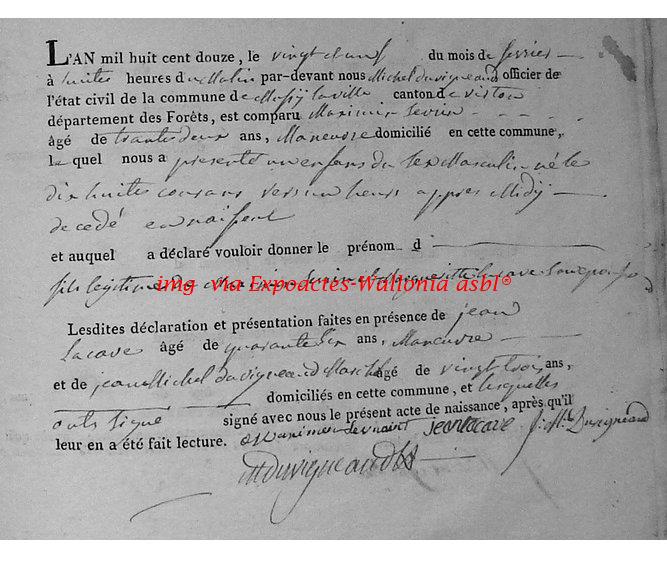 L'AN mil huit cent douze, le vingt et un du mois de fevrier
à huites heures du Matin par-devant nous Michel duvigneaud officier de
l'état civil de la commune de Mussy laville canton de virton
département des Forêts, est comparu Maximin
âgé de trante deux ans, Maneuvre domicilié en cette commune,
le quel nous a presenté un enfans du sex Masculin né le
dix huites courans vers un heure appres Midy
de cedé en naissent
et auquel a déclaré vouloir donner le prénom d
fils legitime de son epouse
img via Expoactes-Wallonia asbl®
Lesdites déclaration et présentation faites en présence de jean
Lacave âgé de quarante six ans, Maneuvre
et de jean Michel duvigneaud âgé de vingt trois ans,
domiciliés en cette commune, et lesquelles
onts signé signé avec nous le présent acte de naissance, après qu'il
leur en a été fait lecture. jean lacave J. M. Duvigneaud
M duvigneaud